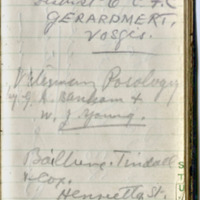 GERARDMERT.
Vosges.
Veterinary Posology
by G. A. Banham &
W. J. Young.
Baillière, Tindall
& Cox.
Henrietta St.